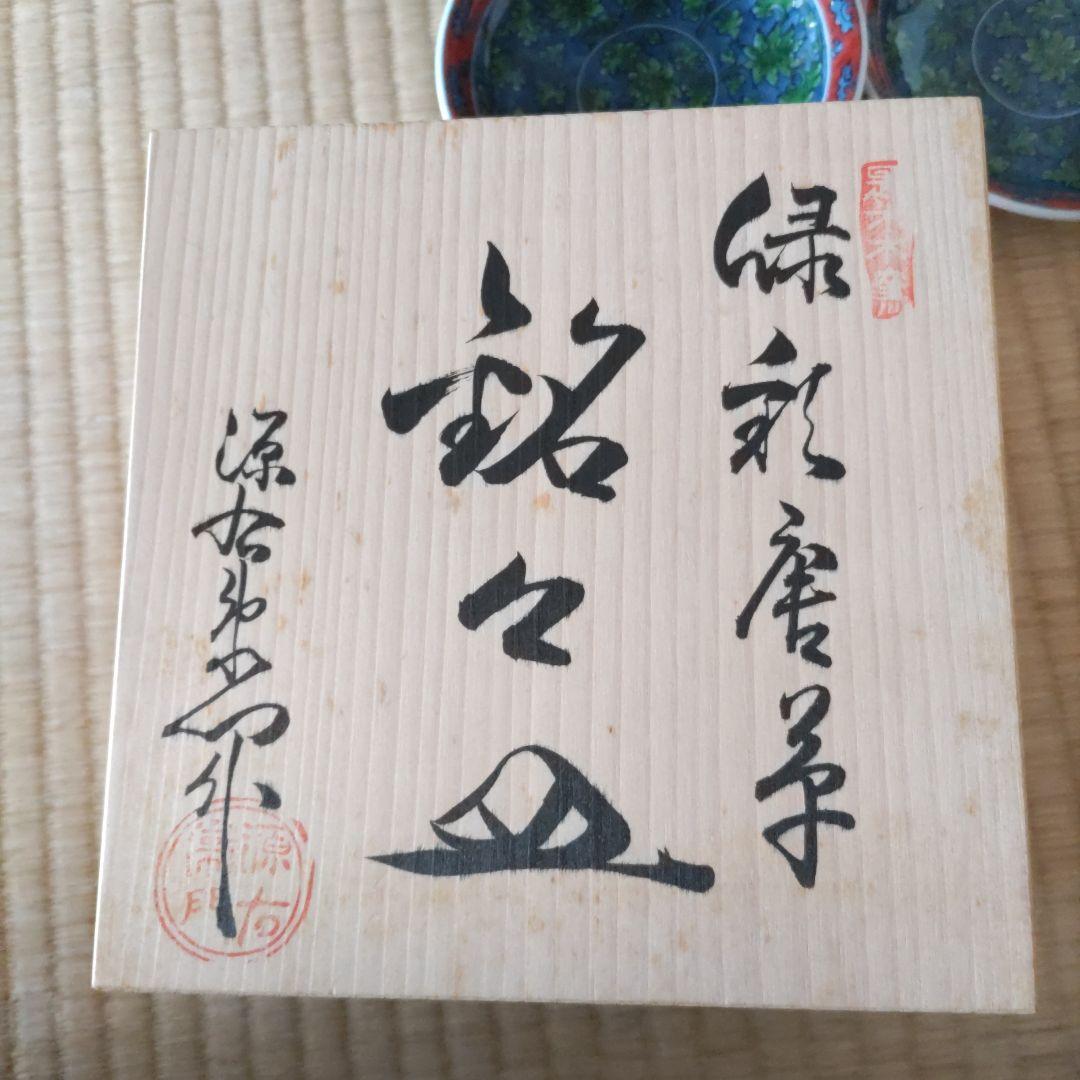 緑彩唐草
銘々皿
源右衛門作
源右衛門